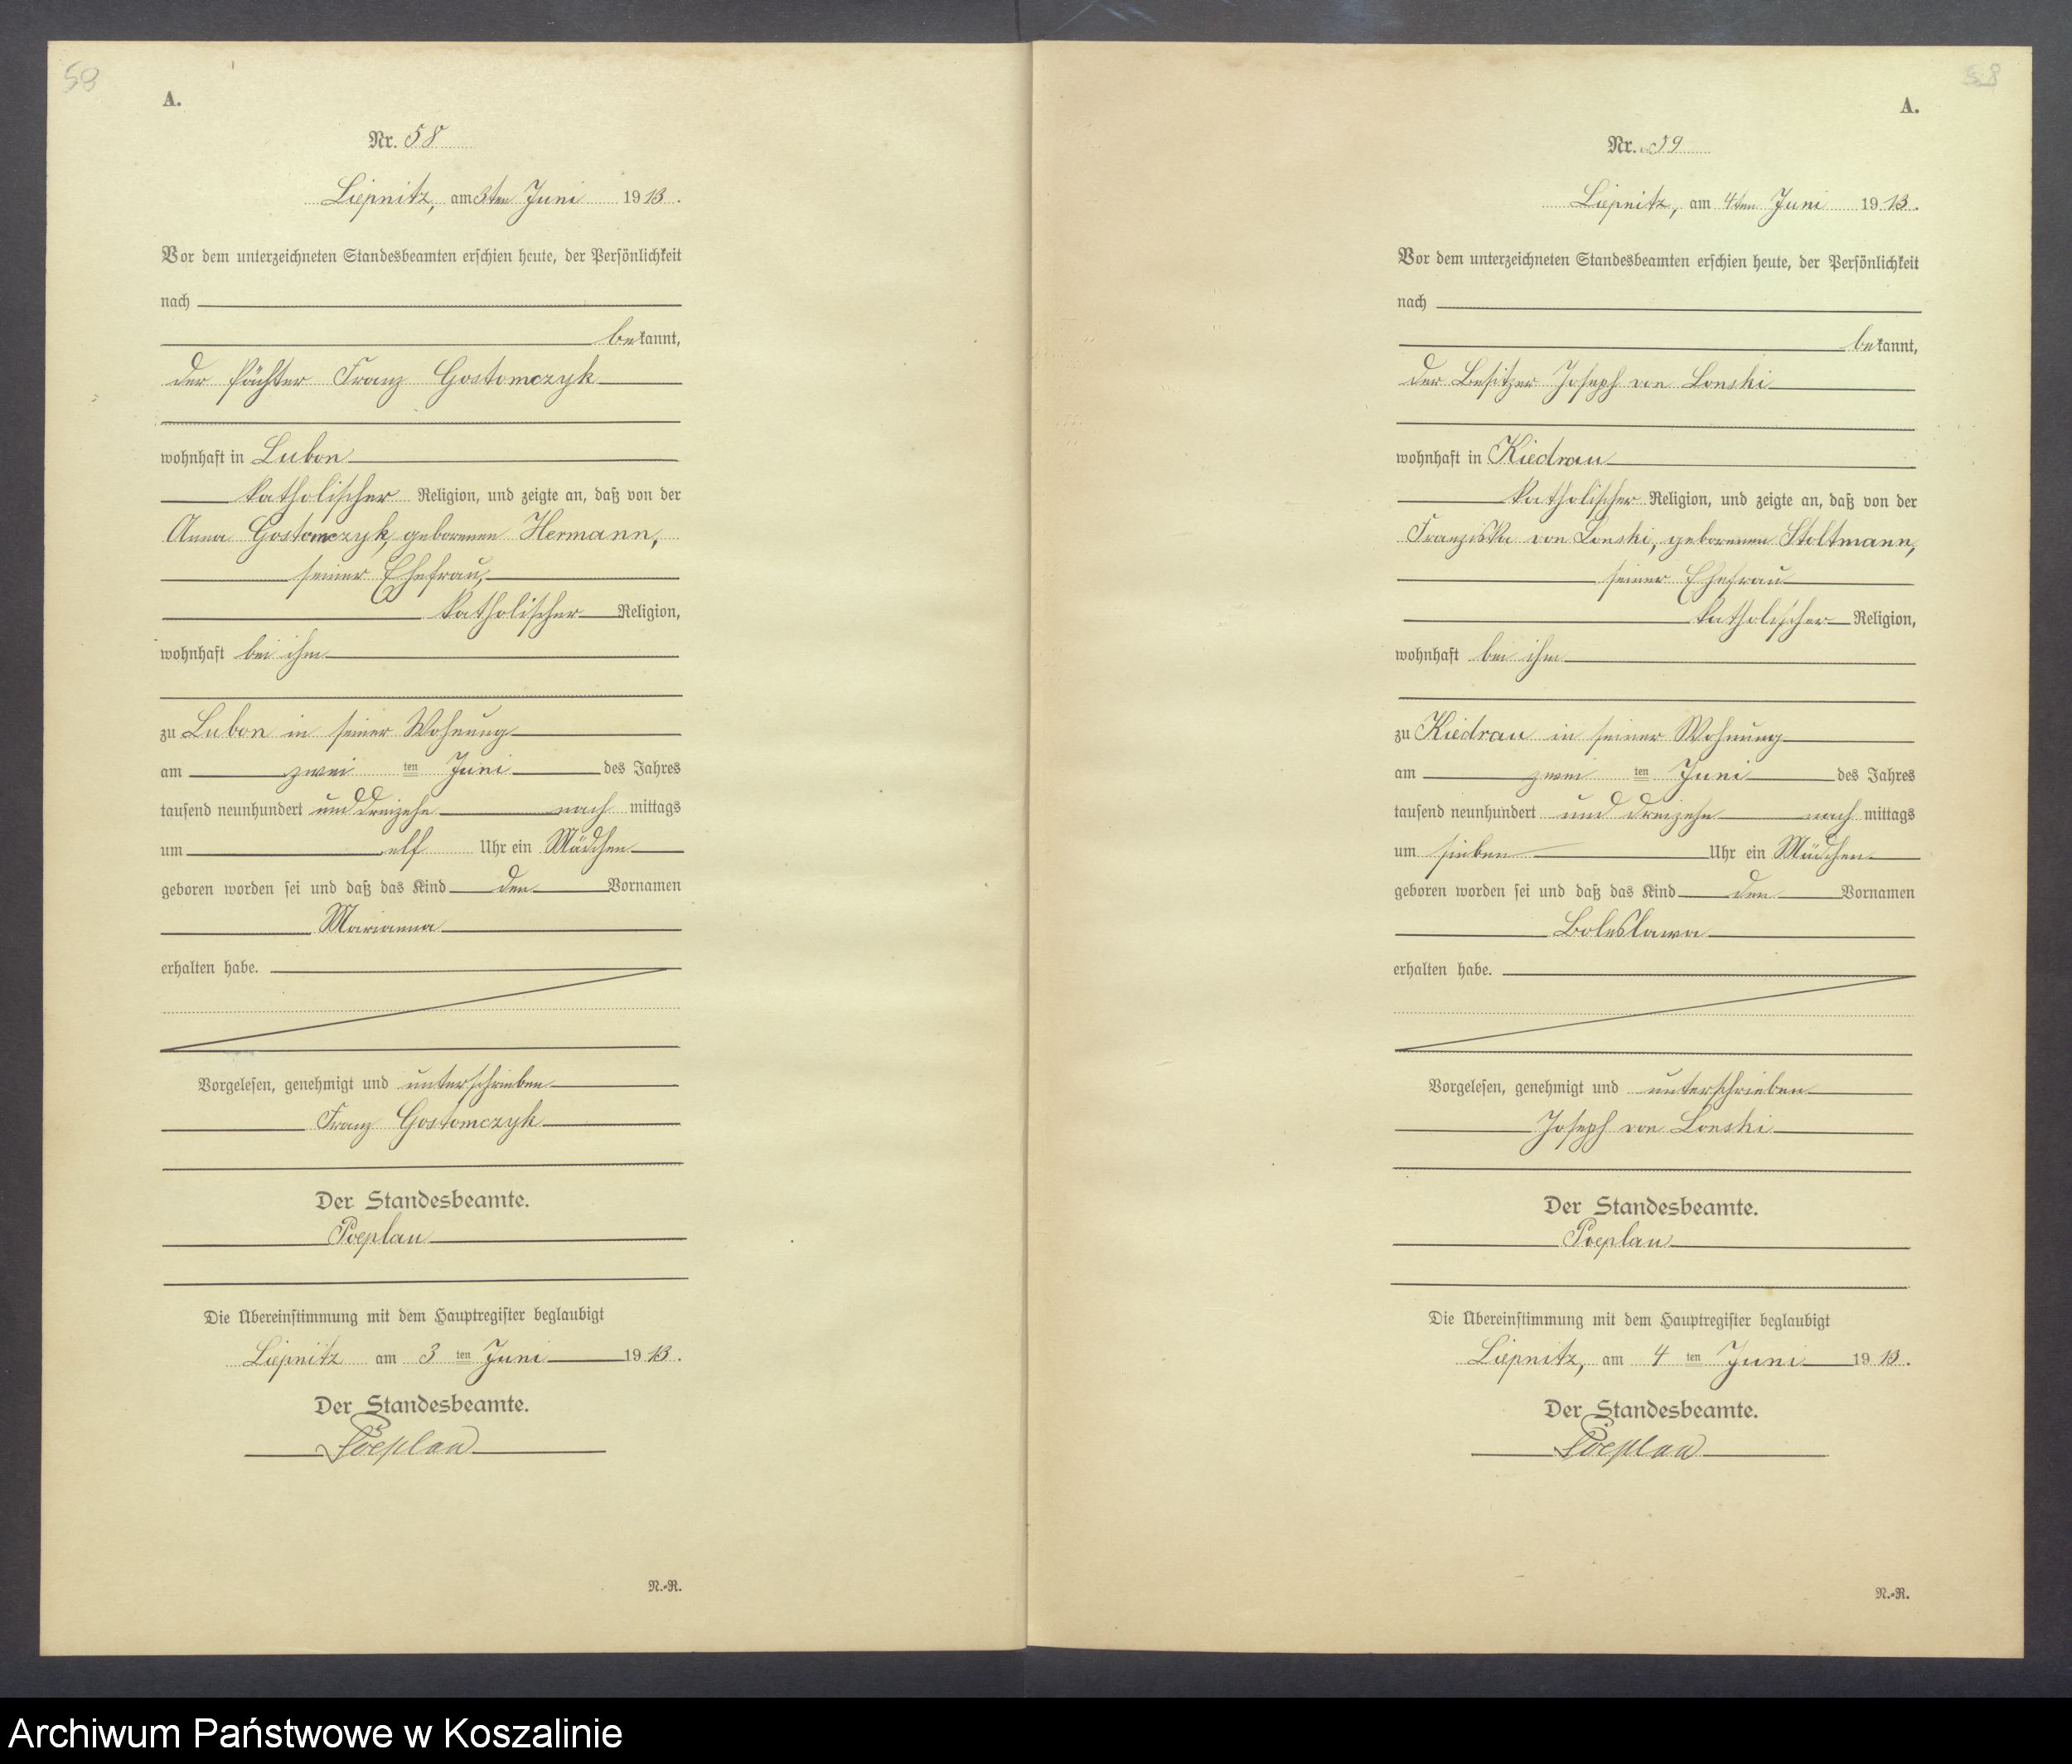 58
A.
Nr. 58
Liepnitz, am 3ten Juni 1913.
Vor dem unterzeichneten Standesbeamten erschien heute, der Persönlichkeit
nach
bekannt,
der Pächter Franz Gostomczyk
wohnhaft in Lubon
katholischer Religion, und zeigte an, daß von der
Anna Gostomczyk, geborenen Hermann,
seiner Ehefrau,
katholischer Religion,
wohnhaft bei ihm
zu Lubon in seiner Wohnung
am zwei ten Juni des Jahres
tausend neunhundert und dreizehn nach mittags
um elf Uhr ein Mädchen
geboren worden sei und daß das Kind den Vornamen
Marianna
erhalten habe.
Vorgelesen, genehmigt und unterschrieben
Franz Gostomczyk
Der Standesbeamte.
Poeplau
Die Übereinstimmung mit dem Hauptregister beglaubigt
Liepnitz am 3 ten Juni 1913.
Der Standesbeamte.
Poeplau
N.-R.
58
A.
Nr. 59
Liepnitz, am 4ten Juni 1913.
Vor dem unterzeichneten Standesbeamten erschien heute, der Persönlichkeit
nach
bekannt,
der Besitzer Joseph von Lonski
wohnhaft in Kiedrau
katholischer Religion, und zeigte an, daß von der
Franziska von Lonski, geborenen Stoltmann,
seiner Ehefrau
katholischer Religion,
wohnhaft bei ihm
zu Kiedrau in seiner Wohnung
am zwei ten Juni des Jahres
tausend neunhundert und dreizehn nach mittags
um sieben Uhr ein Mädchen
geboren worden sei und daß das Kind den Vornamen
Boleslawa
erhalten habe.
Vorgelesen, genehmigt und unterschrieben
Joseph von Lonski
Der Standesbeamte.
Poeplau
Die Übereinstimmung mit dem Hauptregister beglaubigt
Liepnitz, am 4 ten Juni 1913.
Der Standesbeamte.
Poeplau
N.-R.
Archiwum Państwowe w Koszalinie